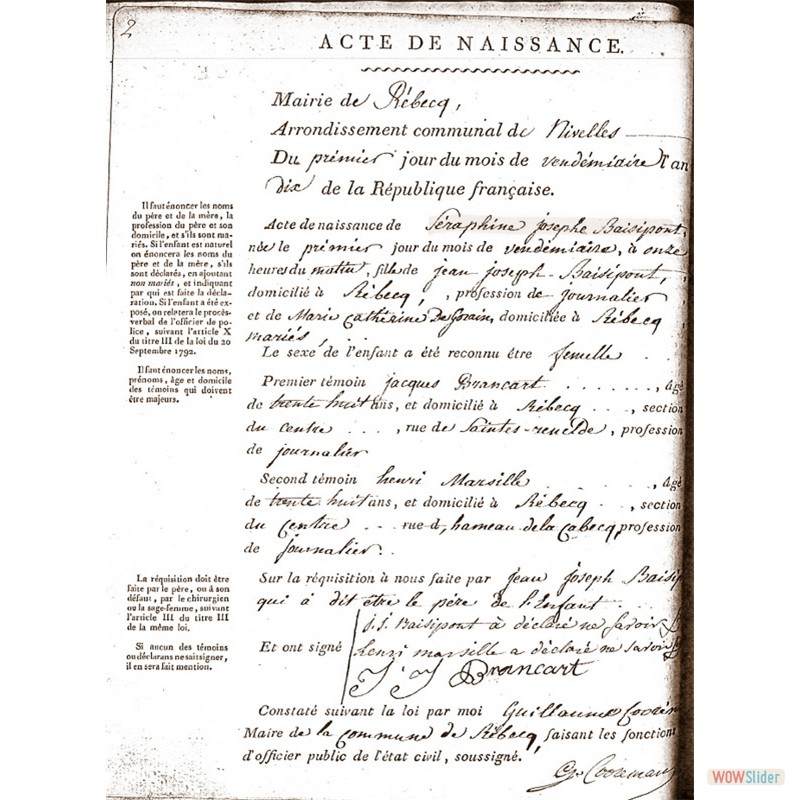 2
ACTE DE NAISSANCE.
Mairie de Rébecq,
Arrondissement communal de Nivelles
Du premier jour du mois de vendémiaire l'an
dix de la République française.
Il faut énoncer les noms
du père et de la mère, la
profession du père et son
domicile, et s'ils sont ma-
riés. Si l'enfant est naturel
on énoncera les noms du
père et de la mère, s'ils
sont déclarés, en ajoutant
non mariés, et indiquant
par qui est faite la décla-
ration. Si l'enfant a été ex-
posé, on relatera le procès-
verbal de l'officier de po-
lice, suivant l'article X
du titre III de la loi du 20
Septembre 1792.
Il faut énoncer les noms,
prénoms, âge et domicile
des témoins qui doivent
être majeurs.
Acte de naissance de Séraphine josephe Baisipont,
née le premier jour du mois de vendémiaire, à onze
heures du matin, fille de jean joseph Baisipont,
domicilié à Rébecq, , profession de journalier
et de Marie Catherine , domiciliée à Rébecq
mariés,
Le sexe de l'enfant a été reconnu être femelle . .
Premier témoin jacques Brancart . . . . . . . , âgé
de trente huit ans, et domicilié à Rébecq . . . , section
du centre . . . , rue de Saintes-renelde, profession
de journalier
Second témoin henri Marsille . . , âgé
de trente huit ans, et domicilié à Rébecq . . . , section
du Centre . . . rue d, hameau de la Cabecq, profession
de journalier. .
La réquisition doit être
faite par le père, ou à son
défaut, par le chirurgien
ou la sage-femme, suivant
l'article III du titre III
de la même loi.
Si aucun des témoins
ou déclarans ne sait signer,
il en sera fait mention.
Sur la réquisition à nous faite par jean joseph Baisip
qui à dit être le père de l'Enfant
j. j. Baisipont à déclaré ne Savoir
Et ont signé henri marsille a déclaré ne savoir
J J Brancart
Constaté suivant la loi par moi Guillaume
Maire de la commune de Rébecq, faisant les fonctions
d'officier public de l'état civil, soussigné.
G. Cooremans
WOWSlider